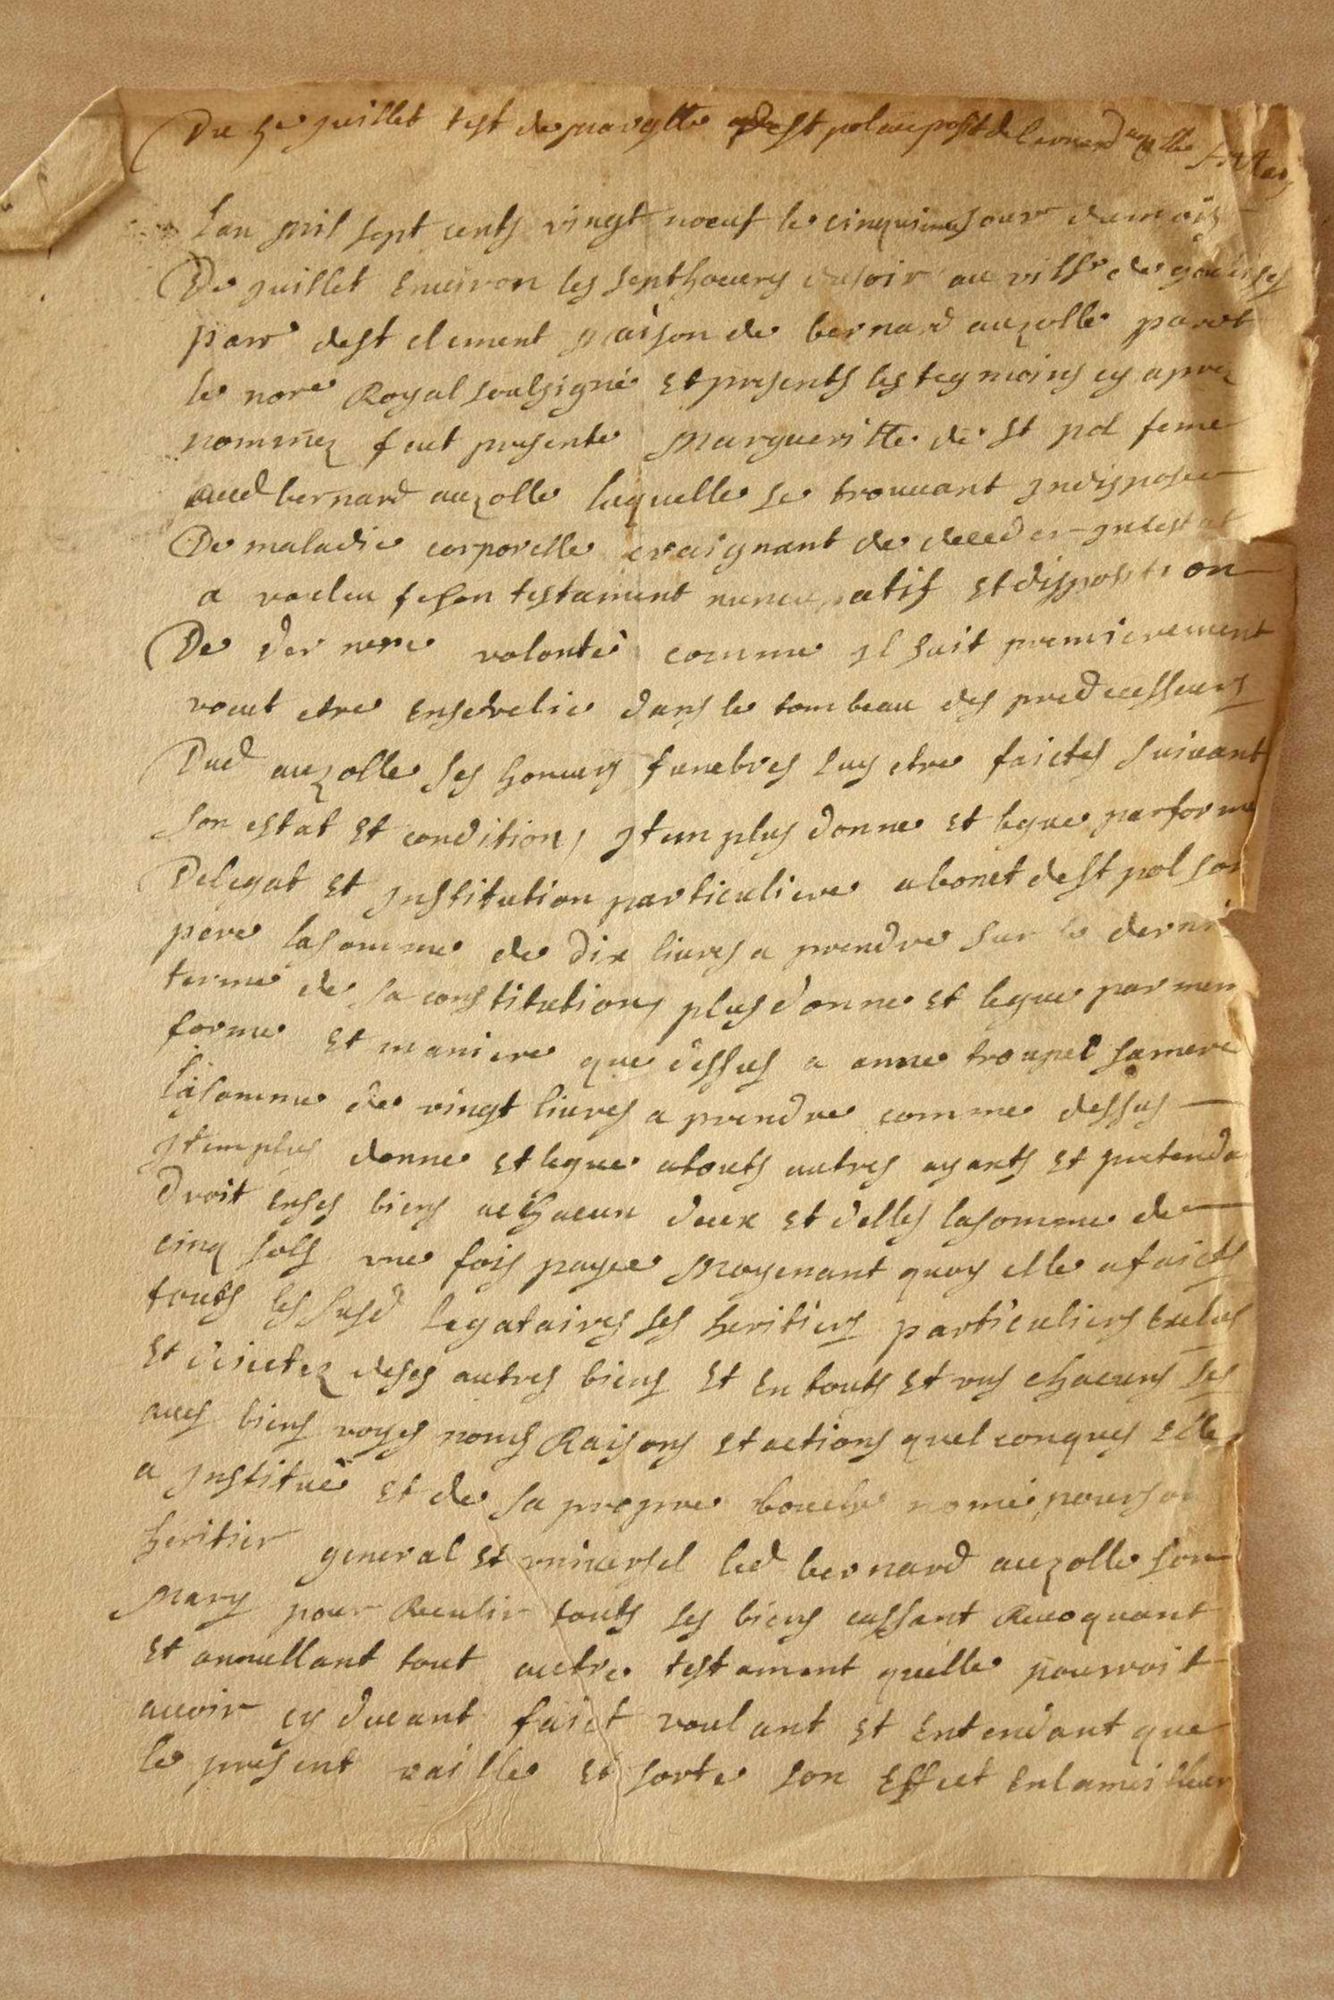 Du 5e juillet test de margtte de st pol au profit de bernard auzolle
Lan mil sept cents vingt noeuf le cinquieme jour du mois
De juillet environ les sept hoeures du soir au villge de
parr de st clement maison de bernard auzolle pardt
le nore Royal soulsigné et presents les tegmoins cy aprez
nommez feut presente Margueritte de st pol feme
aud bernard auzolle laquelle se trouvant indisposee
De maladie corporelle craignant de deceder intestat
a voeleu fe son testament nuncupatif et disposition
De dernere volonte comme il suit premierement
voeut etre ensevelie dans le tombeau des predecesseurs
Dud auzolle ses honeurs funebres luy etre faictes suivant
son estat et condition, Item plus donne et legue par forme
De legat et institution particuliere a bonet de st pol son
pere la somme de dix livres a prendre sur le dernier
terme de sa constitution, plus donne et legue par mem
forme et maniere que dessus a anne troupel sa mere
la somme de vingt livres a prendre comme dessus
Item plus donne et legue a touts autres ayants et pretenda
droit en ses biens a chacun deux et delles la somme de
cinq sols une fois payee Moyenant quoy elle a faicts
touts les susd legataires ses heritiers particuliers exclus
et deietez de ses autres biens et en touts et uns chacuns ses
aues biens voyes noms Raisons et actions quelconques elle
a institué et de sa propre bouche nomé pour son
heritier general et universel led bernard auzolle son
Mary pour Receulir touts ses biens cassant Revoquant
et annullant tout autre testament quelle pourroit
avoir cy devant faict voulant et entendant que
le present vaille et sorte son effect en la meilleur